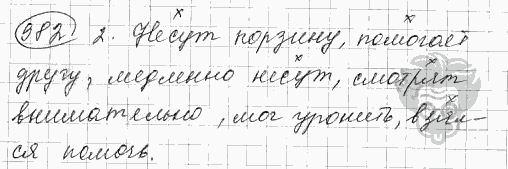 982 2. Несут корзину, помогает
другу, медленно несут, смотрят
внимательно, мог уронить, взял-
ся помочь.